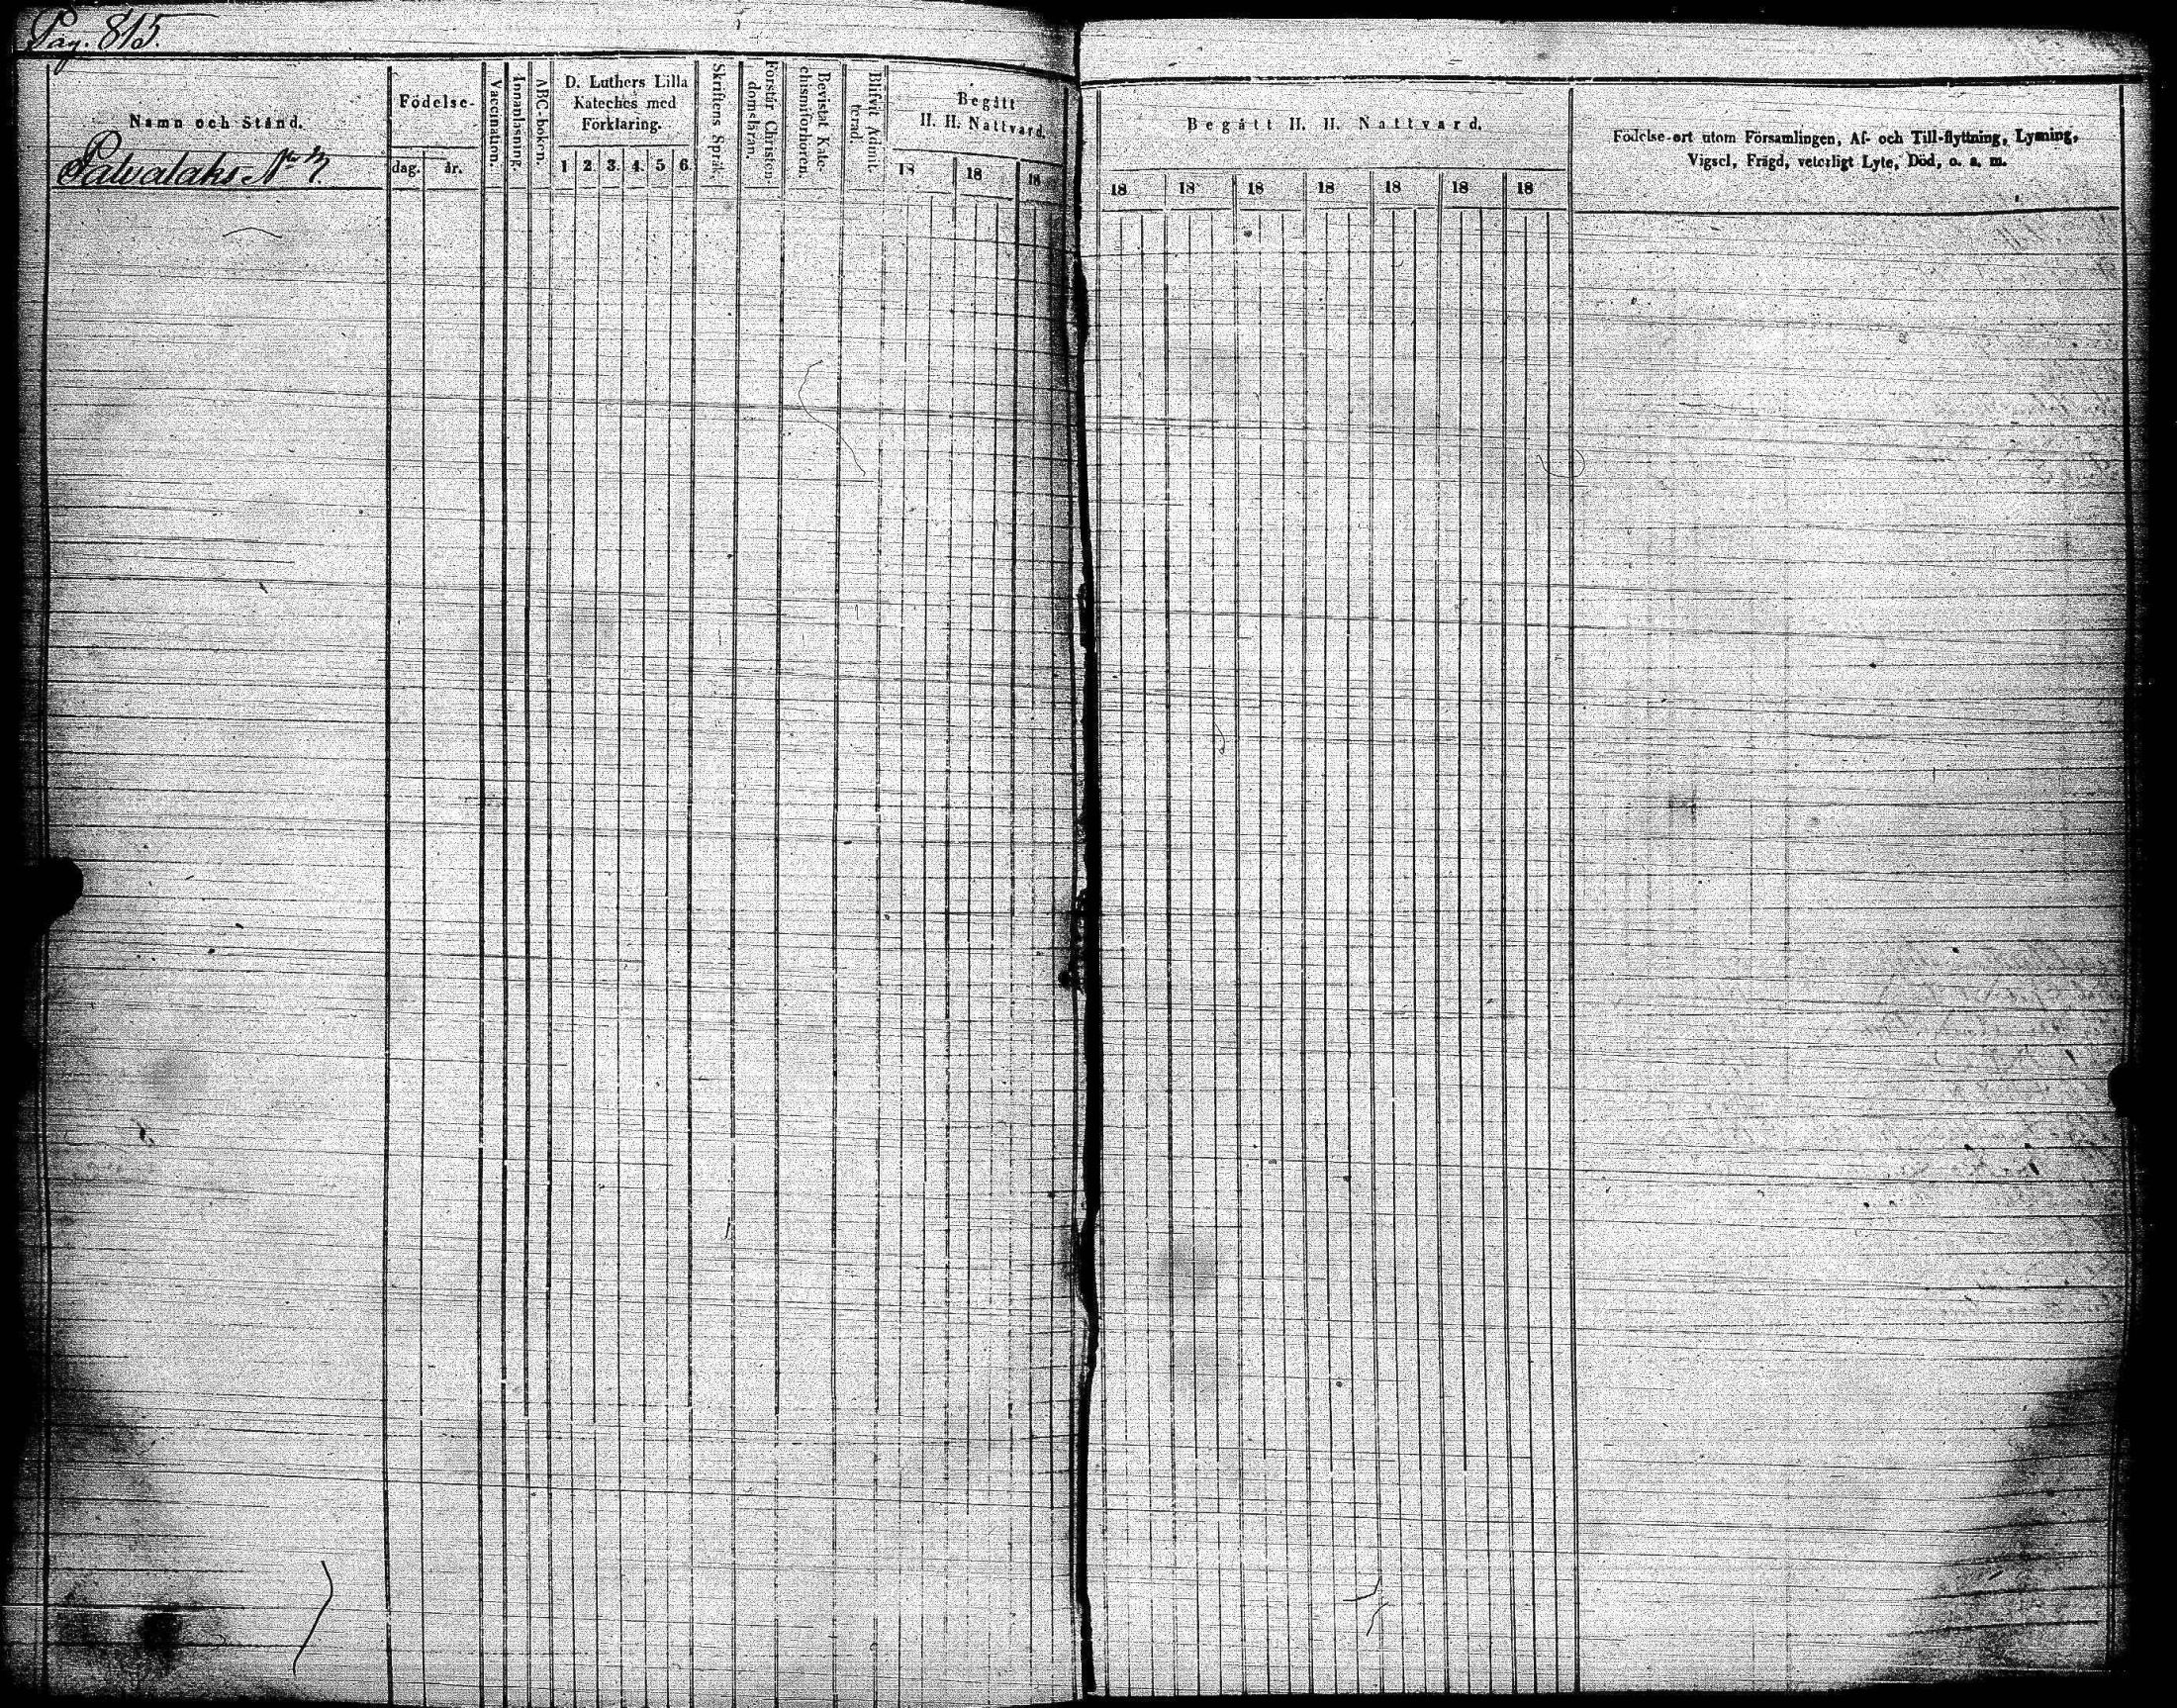 Pag. 815.
Namn och Stånd.
Palvalaks No 7.
Födelse-
dag. år.
Vaccination.
Innanläsning.
ABC-boken.
D. Luthers Lilla
Kateches med
Förklaring.
1 2. 3. 4. 5 6.
Skriftens Språk.
Förstår Christen-
domsläran.
Bevistat Kate-
chismiförhören.
Blifvit Admit-
terad.
Begått
H. H. Nattvard.
18 18 18
Begått H. H. Nattvard.
18 18 18 18 18 18 18
Födelse-ort utom Församlingen, Af- och Till-flyttning, Lysning,
Vigsel, Frägd, veterligt Lyte, Död, o. s. m.